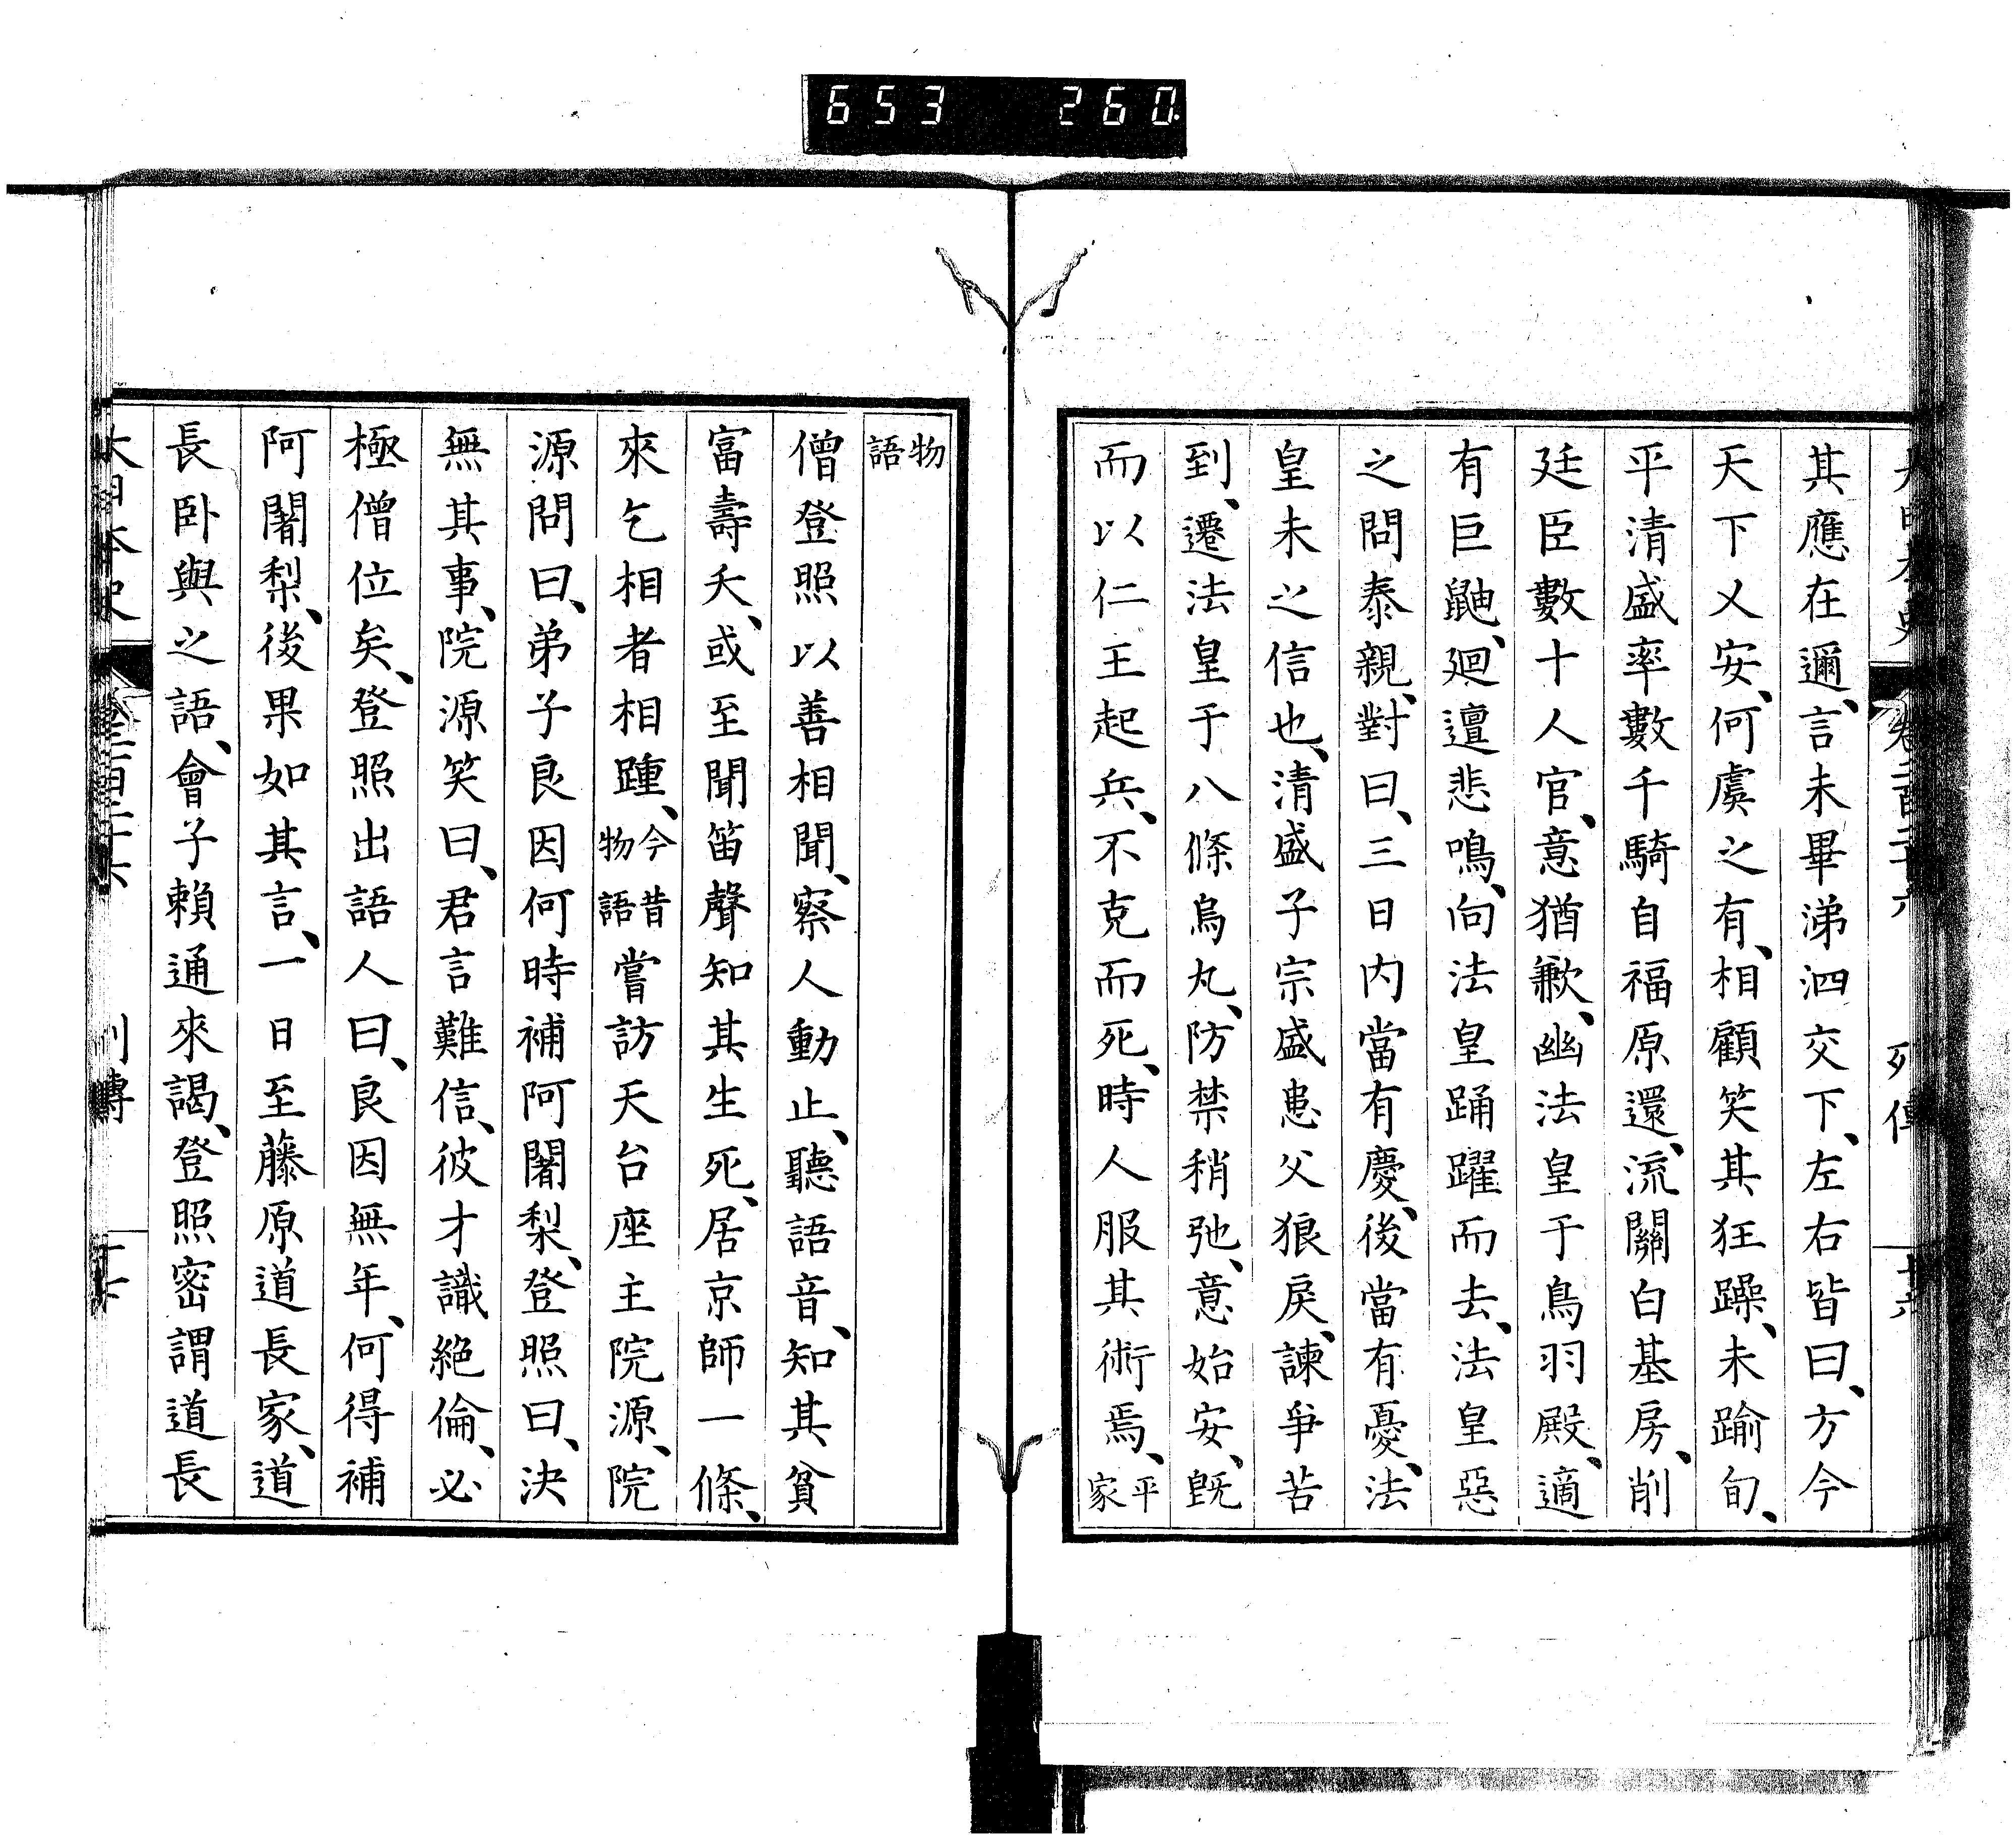 653 260
其應在邇、言未畢涕泗交下、左右皆曰、方今
天下乂安、何虞之有、相顧笑其狂躁、未踰旬、
平清盛率數千騎自福原還、流關白基房、削
廷臣數十人官、意猶歉、幽法皇于鳥羽殿、適
有巨鼬、廻邅悲鳴、向法皇踊躍而去、法皇惡
之問泰親、對曰、三日內當有慶、後當有憂、法
皇未之信也、淸盛子宗盛患父狼戾、諫爭苦
到、遷法皇于八條烏丸、防禁稍弛、意始安、旣
而以仁王起兵、不克而死、時人服其術焉、平家
物語
僧登照以善相聞、察人動止、聽語音、知其貧
富壽夭、或至聞笛聲知其生死、居京師一條、
來乞相者相踵、今昔物語嘗訪天台座主院源、院
源問曰、弟子良因何時補阿闍梨、登照曰、決
無其事、院源笑曰、君言難信、彼才識絕倫、必
極僧位矣、登照出語人曰、良因無年、何得補
阿闍梨、後果如其言、一日至藤原道長家、道
長卧與之語、會子賴通來謁、登照密謂道長
大日本史